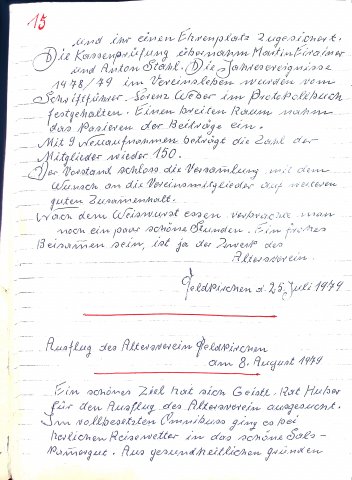 15
und ihr einen Ehrenplatz zugesichert.
Die Kassenprüfung übernahm Martin
und Anton Stahl. Die Jahresereignisse
1978/79 im Vereinsleben wurden vom
Schriftführer Lorenz Weber im Protokollbuch
festgehalten. Einen breiten Raum nahm
das Kasieren der Beiträge ein.
Mit 9 Neuaufnahmen beträgt die Zahl der
Mitglieder wieder 150.
Der Vorstand schloss die Versamlung mit dem
Wunsch an die Vereinsmitglieder auf weiteren
guten Zusamenhalt.
Nach dem Weiswurst essen verbrachte man
noch ein paar schöne Stunden. Ein frohes
Beisam̄en sein, ist ja der Zweck des
Altersverein
Feldkirchen d. 25. Juli 1979
Ausflug des Altersverein Feldkirchen
am 8. August 1979
Ein schönes Ziel hat sich Geistl. Rat Huber
für den Ausflug des Altersverein ausgesucht.
Im vollbesetzten Omnibuss ging es bei
herlichen Reisewetter in das schöne Salz-
kam̄ergut. Aus gesundheitlichen gründen